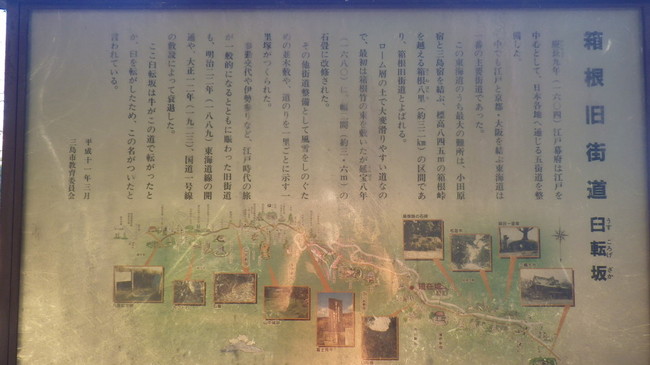 箱根旧街道 臼転坂
うす ころばし ざか
慶長九年(一六〇四)江戸幕府は江戸を
中心として、日本各地へ通じる五街道を整
備した。
中でも江戸と京都・大阪を結ぶ東海道は
一番の主要街道であった。
この東海道のうち最大の難所は、小田原
宿と三島宿を結ぶ、標高八四五mの箱根峠
を越える箱根八里(約三二㎞)の区間であ
り、箱根旧街道とよばれる。
ローム層の土で大変滑りやすい道なの
で、最初は箱根竹の束を敷いたが延宝八年
(一六八〇)に、幅二間(約三・六m)の
石畳に改修された。
その他街道整備として風雪をしのぐた
めの並木敷や、道のりを一里ごとに示す一
里塚がつくられた。
参勤交代や伊勢参りなど、江戸時代の旅
が一般的になるとともに賑わった旧街道
も、明治二二年(一八八九)東海道線の開
通や、大正一二年(一九二三)、国道一号線
の敷設によって衰退した。
ここ臼転坂は牛がこの道で転がったと
か、臼を転がしたため、この名がついたと
言われている。
平成十一年三月
三島市教育委員会